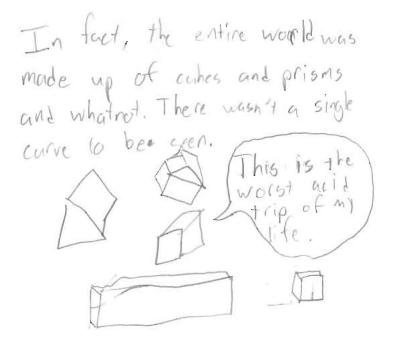 In fact, the entire world was
made up of cubes and prisms
and whatnot. There wasn't a single
curve to be seen.
This is the
worst acid
trip of my
life.